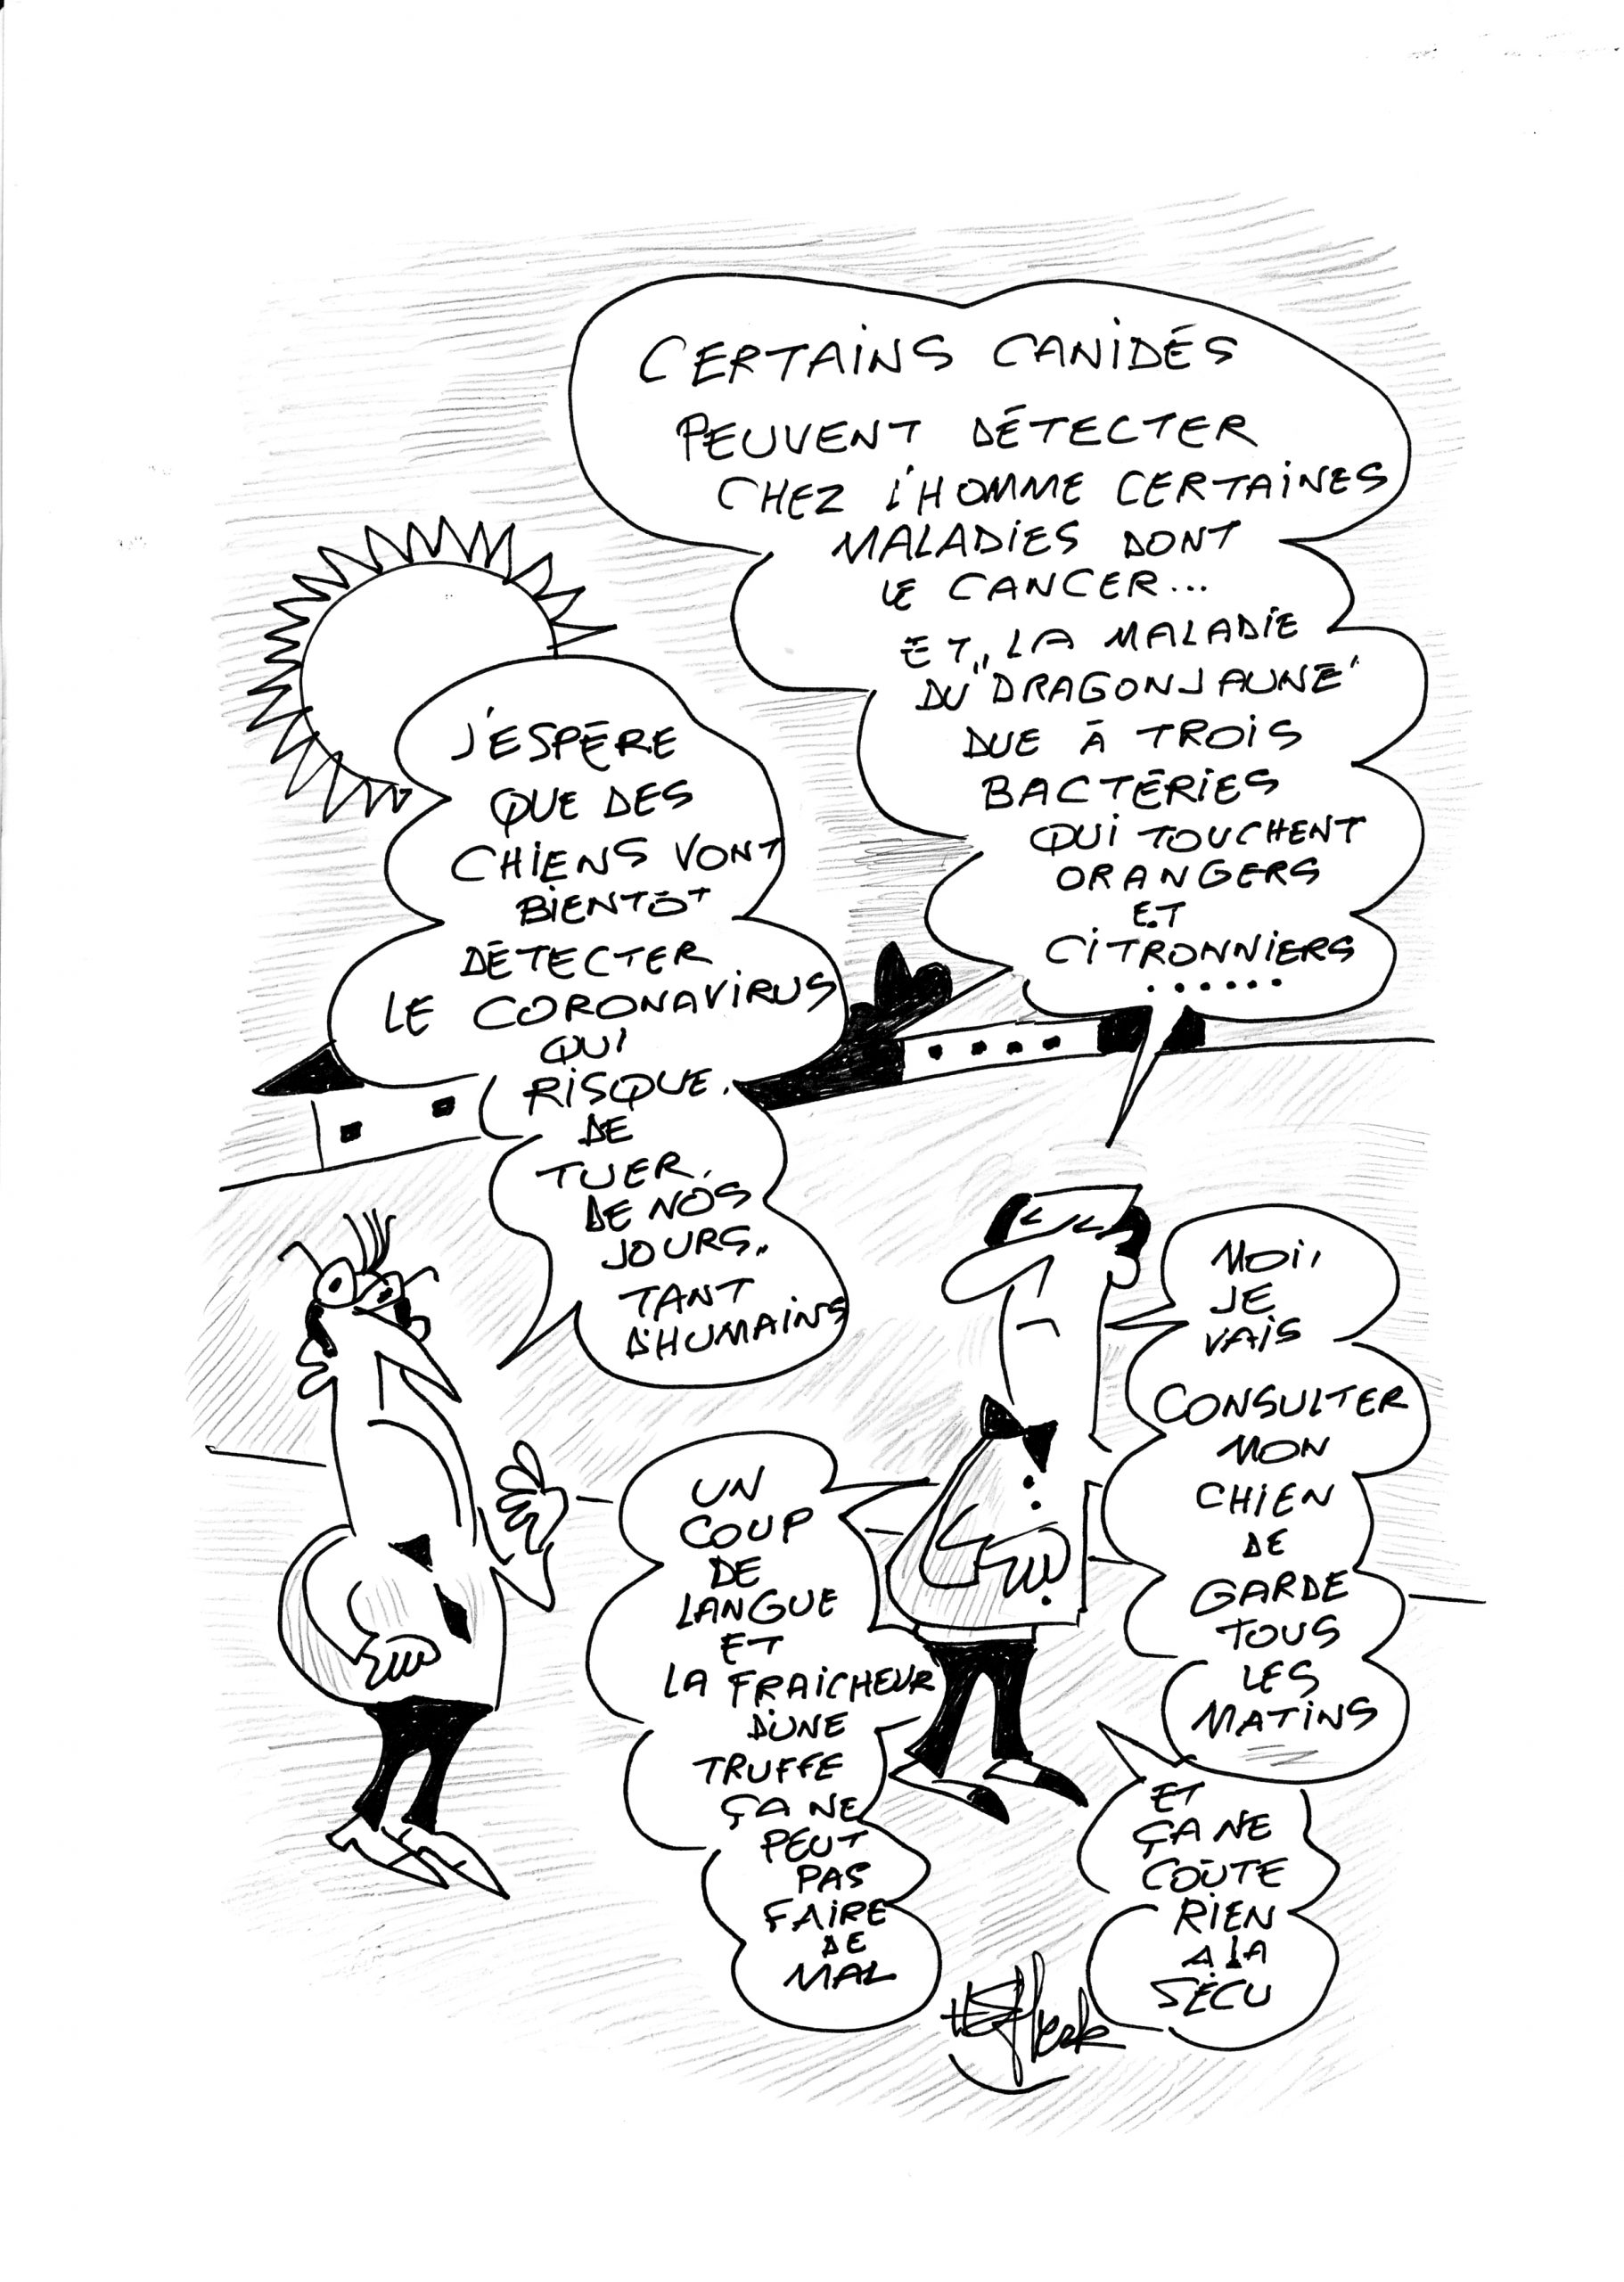 CERTAINS CANIDÉS
PEUVENT DÉTECTER
CHEZ L'HOMME CERTAINES
MALADIES DONT
LE CANCER...
ET,, LA MALADIE
DU "DRAGON JAUNE"
DUE À TROIS
BACTÉRIES
QUI TOUCHENT
ORANGERS
ET
CITRONNIERS
......
J'ESPÈRE
QUE DES
CHIENS VONT
BIENTÔT
DÉTECTER
LE CORONAVIRUS
QUI
RISQUE.
DE
TUER,
DE NOS
JOURS..
TANT
D'HUMAINS
MOI,
JE
VAIS
CONSULTER
MON
CHIEN
DE
GARDE
TOUS
LES
MATINS
UN
COUP
DE
LANGUE
ET
LA FRAICHEUR
D'UNE
TRUFFE
ÇA NE
PEUT
PAS
FAIRE
DE
MAL
ET
ÇA NE
COÛTE
RIEN
A LA
SÉCU